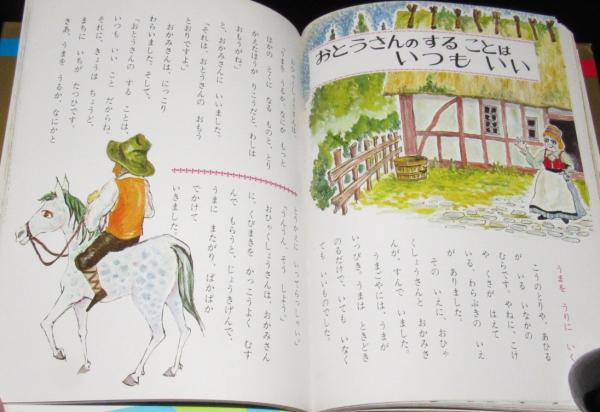 おとうさんの する ことは
いつも いい
うまを うりに いく
こうのとりや、あひる
が いる いなかの
むらです。やねに、こけ
や くさが はえて
いる、わらぶきの いえ
が ありました。
その いえに、おひゃ
くしょうさんと おかみさ
んが、すんで いました。
うまごやには、うまが
いっぴき。うまは ときどき
のるだけで、いても いなく
ても いいものでした。
「うまを うるか、なにか もっと
ほかの とくに なる ものと、とり
かえたほうが りこうだと、わしは
おもうがね。」
と、おかみさんに いいました。
「それは、おとうさんの おもう
とおりですよ。」
おかみさんは、にっこり
わらいました。そして、
「おとうさんの する ことは、
いつも いい ことだからね。
それに、きょうは ちょうど、
まちに いちが たつひです。
さあ、うまを うるか、なにかと
とりかえに いってらっしゃい。」
「うんうん、そう しよう。」
おひゃくしょうさんは、おかみさん
に、くびまきを かっこうよく むす
んで もらうと、じょうきげんで、
うまに またがり、ぱかぱか
でかけて
いきました。